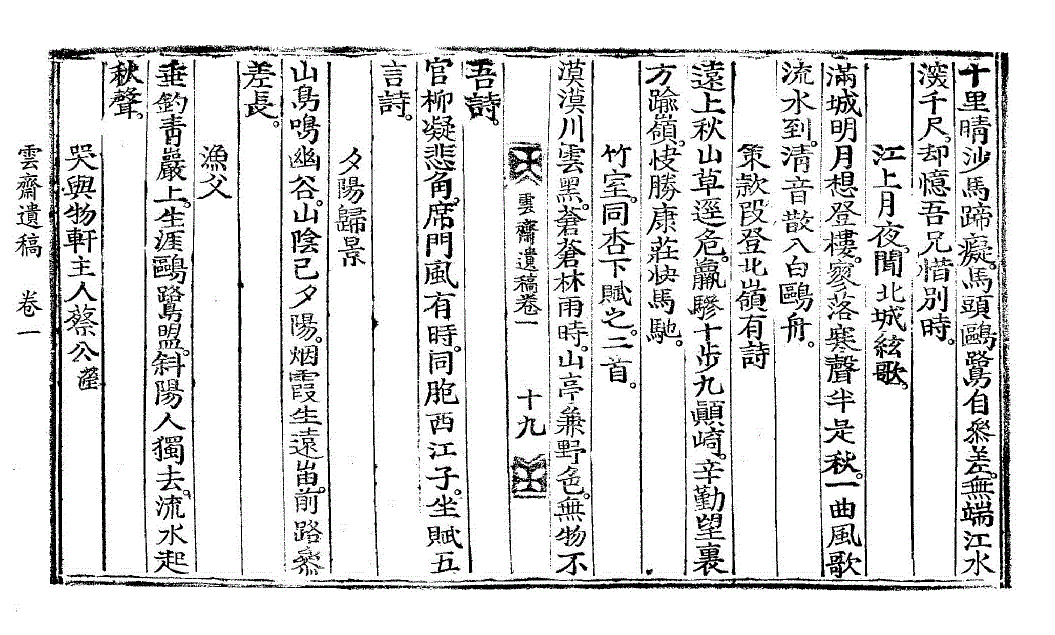 十里晴沙馬蹄癡。馬頭鷗鷺自參差。無端江水
深千尺。却憶吾兄惜別時。
江上月夜。聞北城絃歌。
滿城明月想登樓。寥落寒聲半是秋。一曲風歌
流水到。清音散入白鷗舟。
策款段登北嶺有詩
遠上秋山草逕危。羸驂十步九顚崎。辛勤望裏
方踰嶺。快勝康莊快馬馳。
竹室。同杏下賦之。二首。
漠漠川雲黑。蒼蒼林雨時。山亭兼野色。無物不
雲齋遺稿卷一 十九
吾詩。
官柳凝悲角。席門風有時。同胞西江子。坐賦五
言詩。
夕陽歸景
山鳥鳴幽谷。山陰已夕陽。烟霞生遠峀。前路參
差長。
漁父
垂釣靑巖上。生涯鷗鷺盟。斜陽人獨去。流水起
秋聲。
哭與物軒主人蔡公瀅
雲齋遺稿 卷一